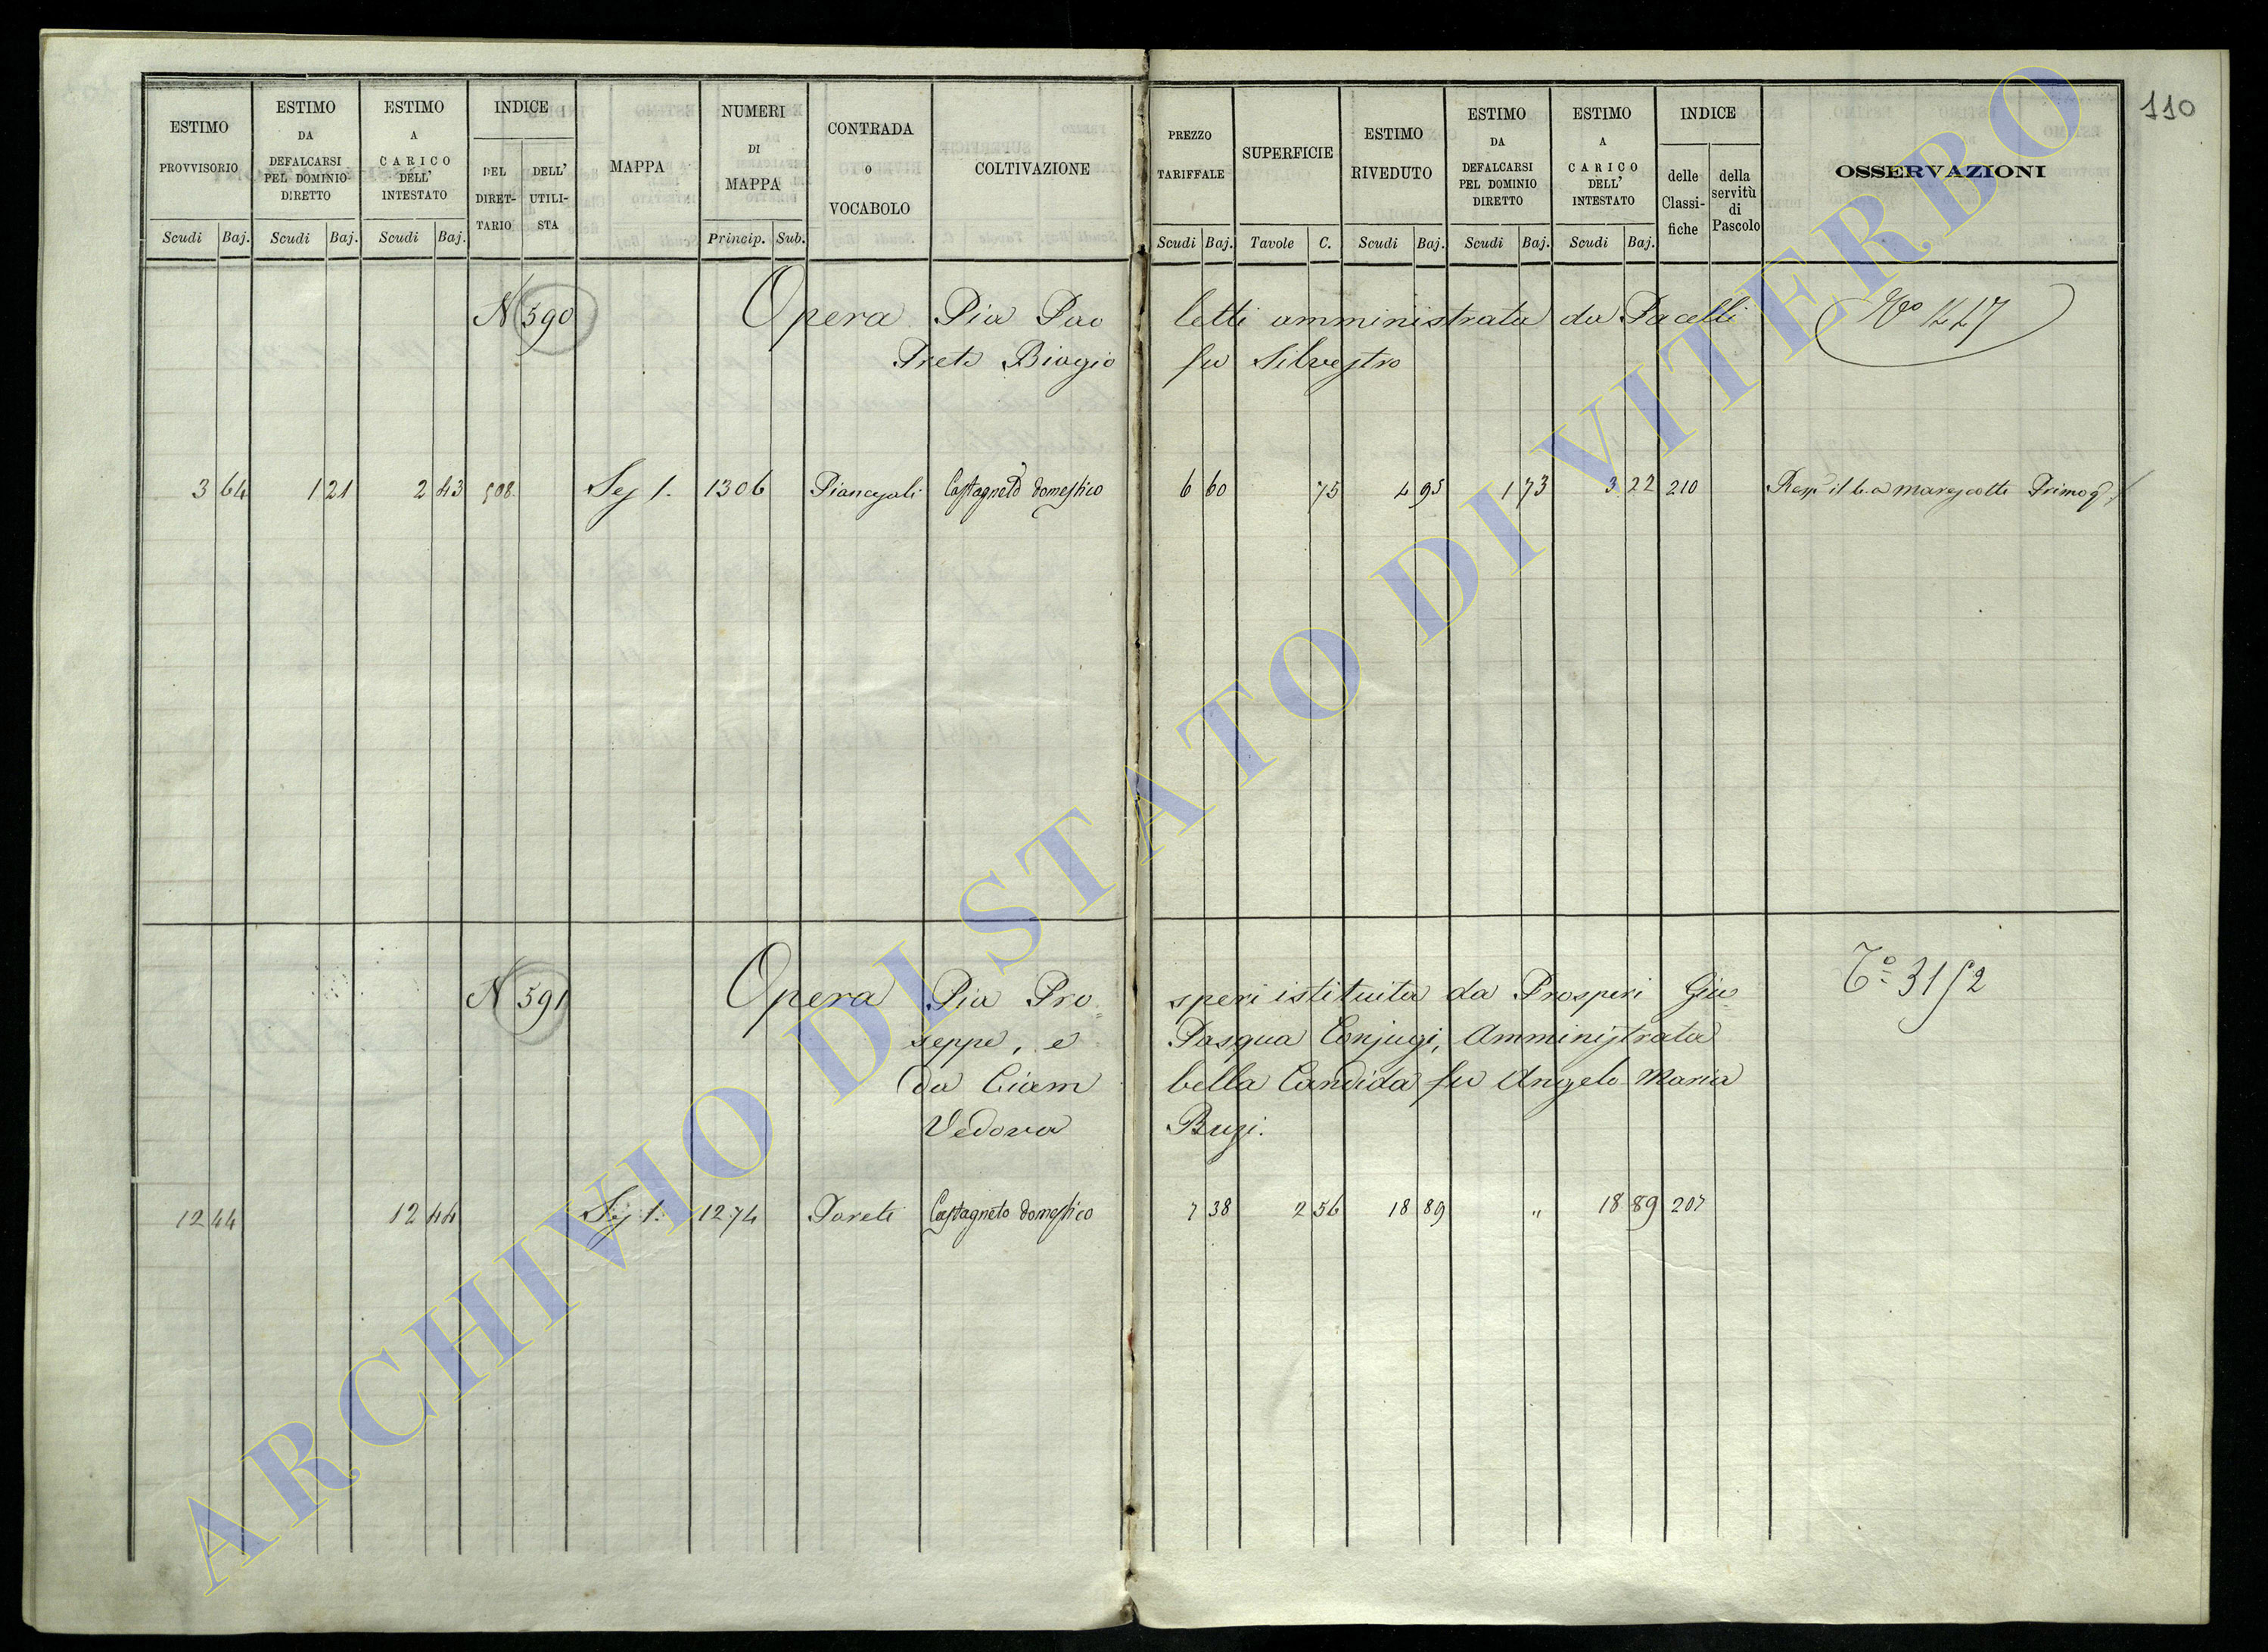 110
ESTIMO PROVVISORIO
ESTIMO DA DEFALCARSI PEL DOMINIO DIRETTO
ESTIMO A CARICO DELL' INTESTATO
INDICE
DEL DIRETTARIO
DELL' UTILISTA
MAPPA
NUMERI DI MAPPA
CONTRADA O VOCABOLO
COLTIVAZIONE
PREZZO TARIFFALE
SUPERFICIE
ESTIMO RIVEDUTO
ESTIMO DA DEFALCARSI PEL DOMINIO DIRETTO
ESTIMO A CARICO DELL' INTESTATO
INDICE
delle Classifiche
della servitù di Pascolo
OSSERVAZIONI
Scudi Baj. Scudi Baj. Scudi Baj. Princip. Sub. Scudi Baj. Tavole C. Scudi Baj. Scudi Baj. Scudi Baj.
N 590 Opera Pia Pao letti amministrata da Pacelli
Prete Biagio fu Silvestro
3 64 1 21 2 43 508 Sez 1. 1306 Castagneto domestico 6 60 75 4 95 1 73 3 22 210
N 591 Opera Pia Pro= speri istituita da Prosperi Giu= Tº 3152
seppe, e Pasqua Conjugi, Amministrata
da Ciam bella Candida fu Angelo Maria
Vedova Bugi.
12 44 12 44 Sez 1. 1274 Pareti Castagneto domestico 7 38 2 56 18 89 " 18 89 207
ARCHIVIO DI STATO DI VITERBO